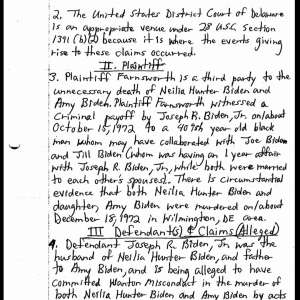 2. The United States District Court of Delaware
is an appropriate venue under 28 U.S.C. Section
1391 (b)(2) because it is where the events giving
rise to these claims occurred.
II. Plaintiff
3. Plaintiff Farnsworth is a third party to the
unnecessary death of Neilia Hunter Biden and
Amy Biden. Plaintiff Farnsworth witnessed a
Criminal payoff by Joseph R. Biden, Jr. on/about
October 15, 1972 to a 40ish year old black
man whom may have collaborated with Joe Biden
and Jill Biden (whom was having an 1 year affair
with Joseph R. Biden, Jr, while both were married
to each others spouses). There is circumstantial
evidence that both Neilia Hunter Biden and
daughter, Amy Biden were murdered on/about
December 18, 1972 in Wilmington, DE area.
III Defendant(s) & Claims (Alleged)
4. Defendant Joseph R. Biden, Jr. was the
husband of Neilia Hunter Biden, and father
to Amy Biden, and is being alleged to have
committed Wanton Misconduct in the murder of
both Neilia Hunter Biden and Amy Biden by acts